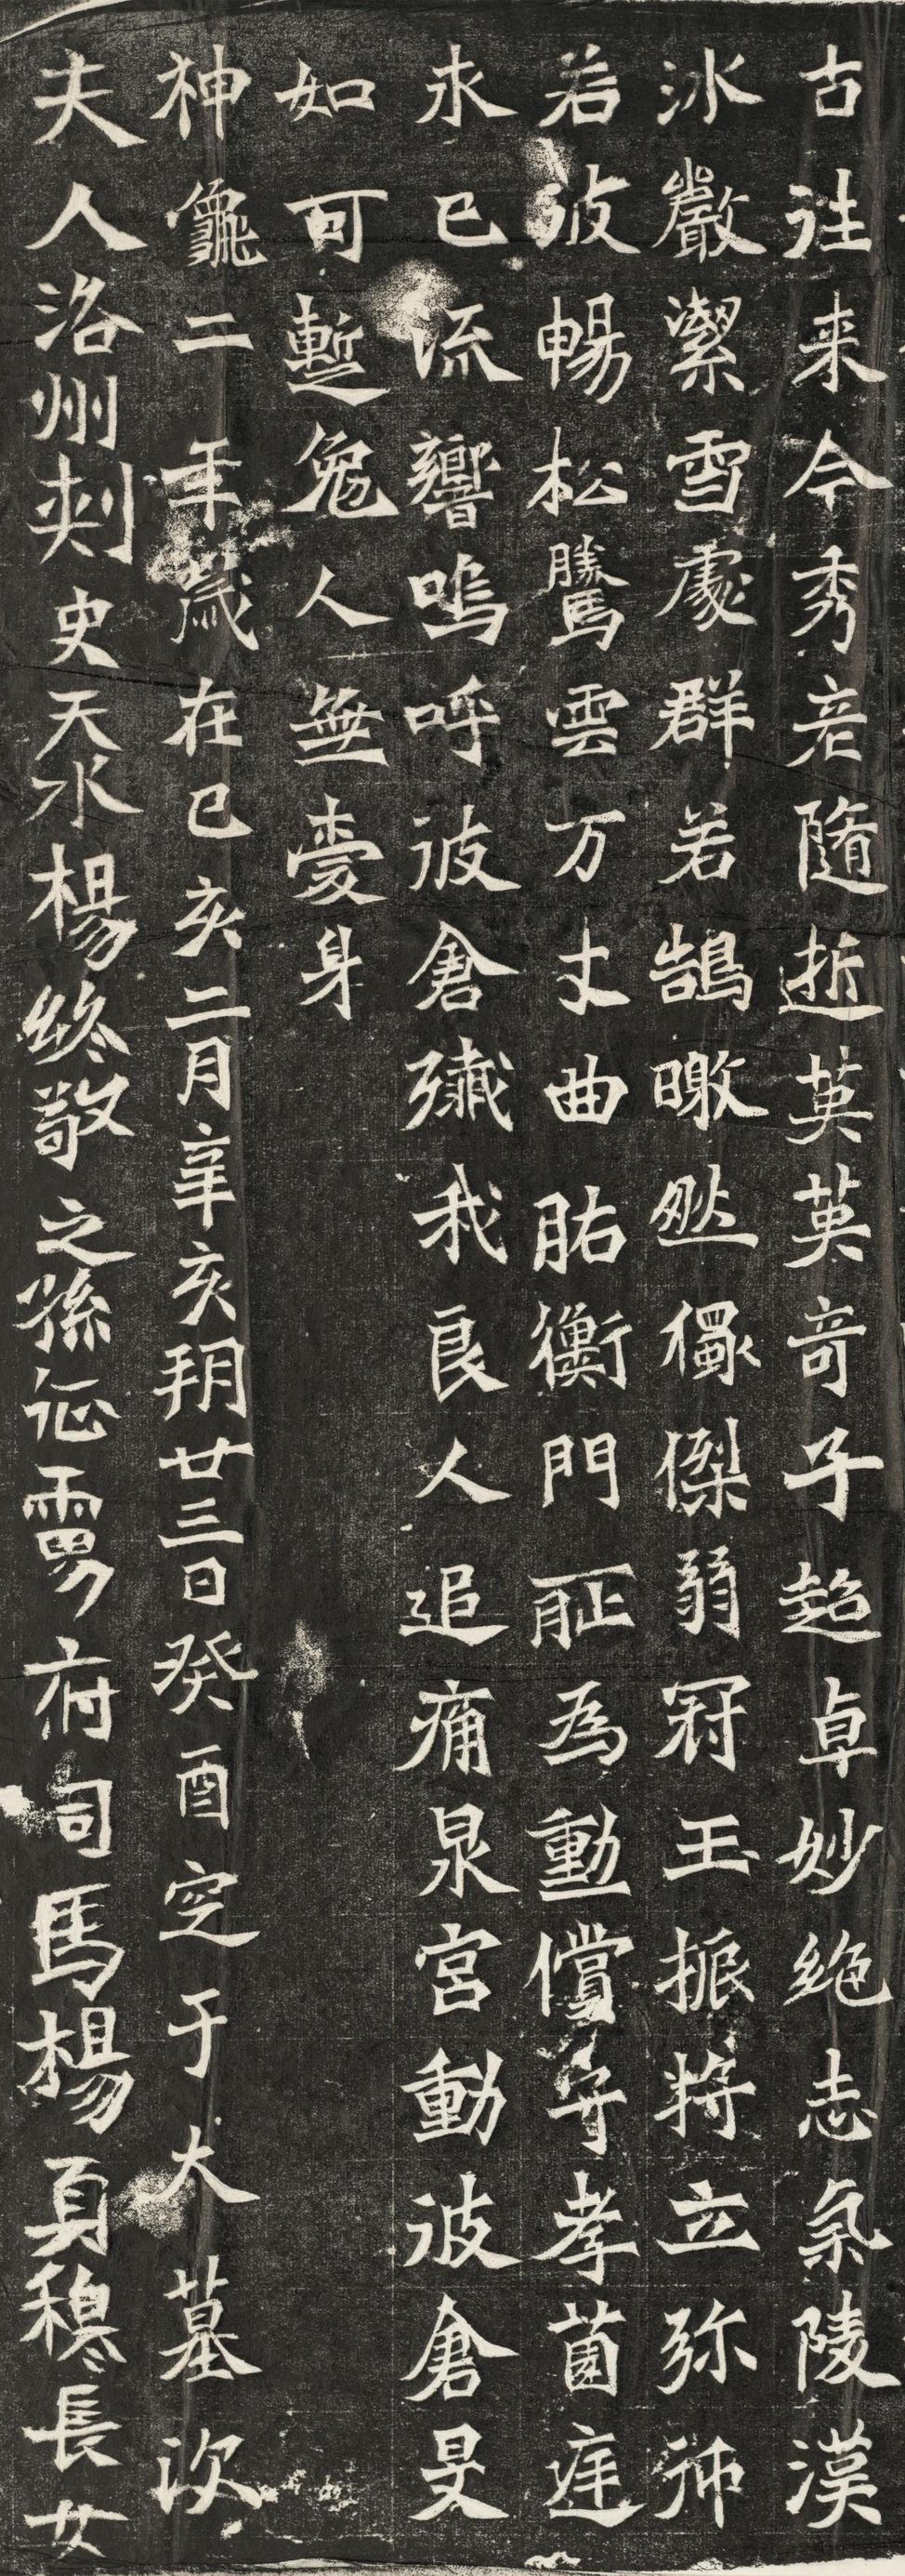 古往来今秀彦隨逝英英奇子超卓妙絶志氣陵漢
冰巖潔雪處群若鵠曒然獨傑弱冠王振將立弥仰
若彼暢松騰雲万丈曲肱衡門耻為勳償守孝菌庭
永已流響嗚呼彼倉殲我良人追痛泉宮動彼倉旻
如可蹔免人無愛身
神龜二年歲在己亥二月辛亥朔廿三日癸酉窆于大墓次
夫人洛州刺史天水楊終敬之孫征虜府司馬楊貞穆長女